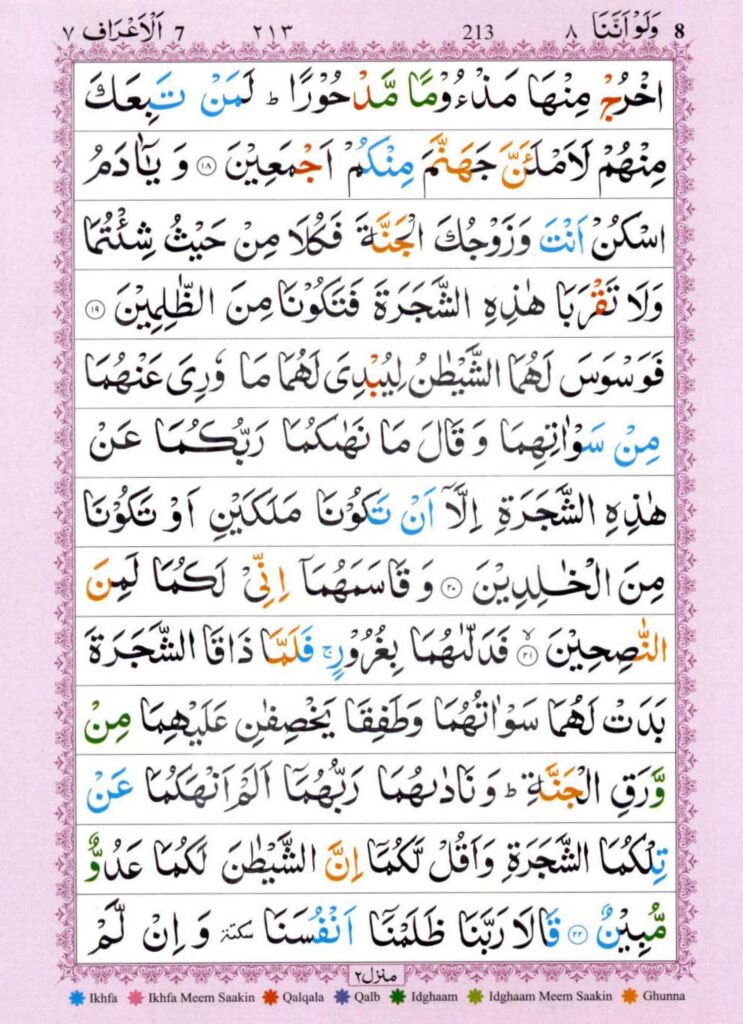 8 وَلَوْ اَنَّنَا ٨ 213 ٢١٣ 7 اَلْاَعْرَاف ٧
اخْرُجْ مِنْهَا مَذْءُوْمًا مَّدْحُوْرًا ؕ لَمَنْ تَبِعَكَ
مِنْهُمْ لَاَمْلَـَٔنَّ جَهَنَّمَ مِنْكُمْ اَجْمَعِيْنَ ۝۱۸ وَ يٰۤاٰدَمُ
اسْكُنْ اَنْتَ وَزَوْجُكَ الْجَنَّةَ فَكُلَا مِنْ حَيْثُ شِئْتُمَا
وَلَا تَقْرَبَا هٰذِهِ الشَّجَرَةَ فَتَكُوْنَا مِنَ الظّٰلِمِيْنَ ۝۱۹
فَوَسْوَسَ لَهُمَا الشَّيْطٰنُ لِيُبْدِيَ لَهُمَا مَا وٗرِيَ عَنْهُمَا
مِنْ سَوْاٰتِهِمَا وَ قَالَ مَا نَهٰىكُمَا رَبُّكُمَا عَنْ
هٰذِهِ الشَّجَرَةِ اِلَّاۤ اَنْ تَكُوْنَا مَلَكَيْنِ اَوْ تَكُوْنَا
مِنَ الْخٰلِدِيْنَ ۝۲۰ وَ قَاسَمَهُمَاۤ اِنِّيْ لَكُمَا لَمِنَ
النّٰصِحِيْنَ ۝۲۱ۙ فَدَلّٰىهُمَا بِغُرُوْرٍ ۚ فَلَمَّا ذَاقَا الشَّجَرَةَ
بَدَتْ لَهُمَا سَوْاٰتُهُمَا وَطَفِقَا يَخْصِفٰنِ عَلَيْهِمَا مِنْ
وَّرَقِ الْجَنَّةِ ؕ وَ نَادٰىهُمَا رَبُّهُمَاۤ اَلَمْ اَنْهَكُمَا عَنْ
تِلْكُمَا الشَّجَرَةِ وَاَقُلْ لَّكُمَاۤ اِنَّ الشَّيْطٰنَ لَكُمَا عَدُوٌّ
مُّبِيْنٌ ۝۲۲ قَالَا رَبَّنَا ظَلَمْنَاۤ اَنْفُسَنَا سكتة وَ اِنْ لَّمْ
منزل ٢
Ikhfa Ikhfa Meem Saakin Qalqala Qalb Idghaam Idghaam Meem Saakin Ghunna